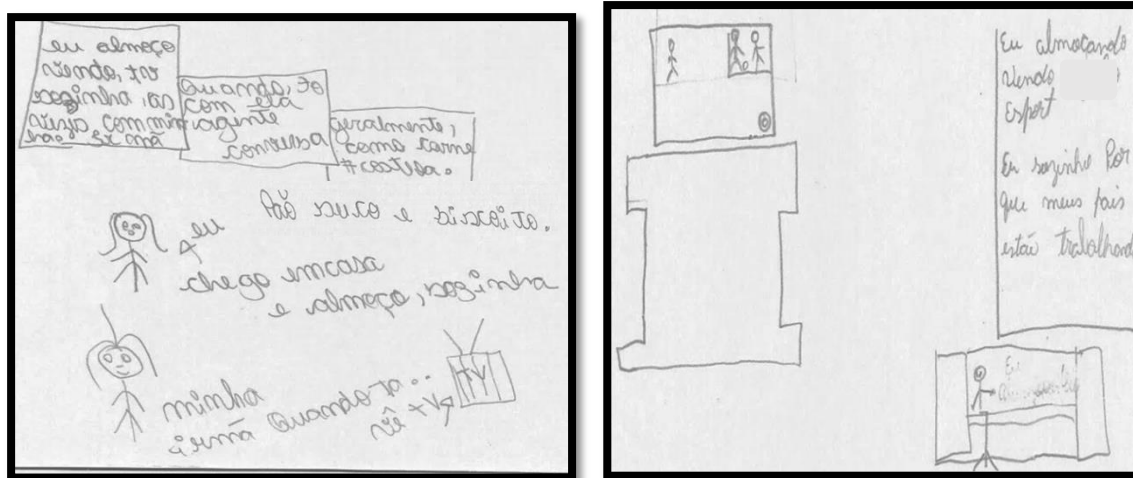 eu almoço
vendo, tv
sozinha, as
vezes com minha
irmã
Quando, to
com ela
agente
conversa
geralmente,
como carne
#costela.
Pão suco e biscoito.
eu
chego em casa
e almoço, sozinha
minha
irmã Quando ta..
vê tv
TV
Eu almoçando
Vendo
Esport
Eu sozinho Por
que meus pais
estão trabalhando
Eu